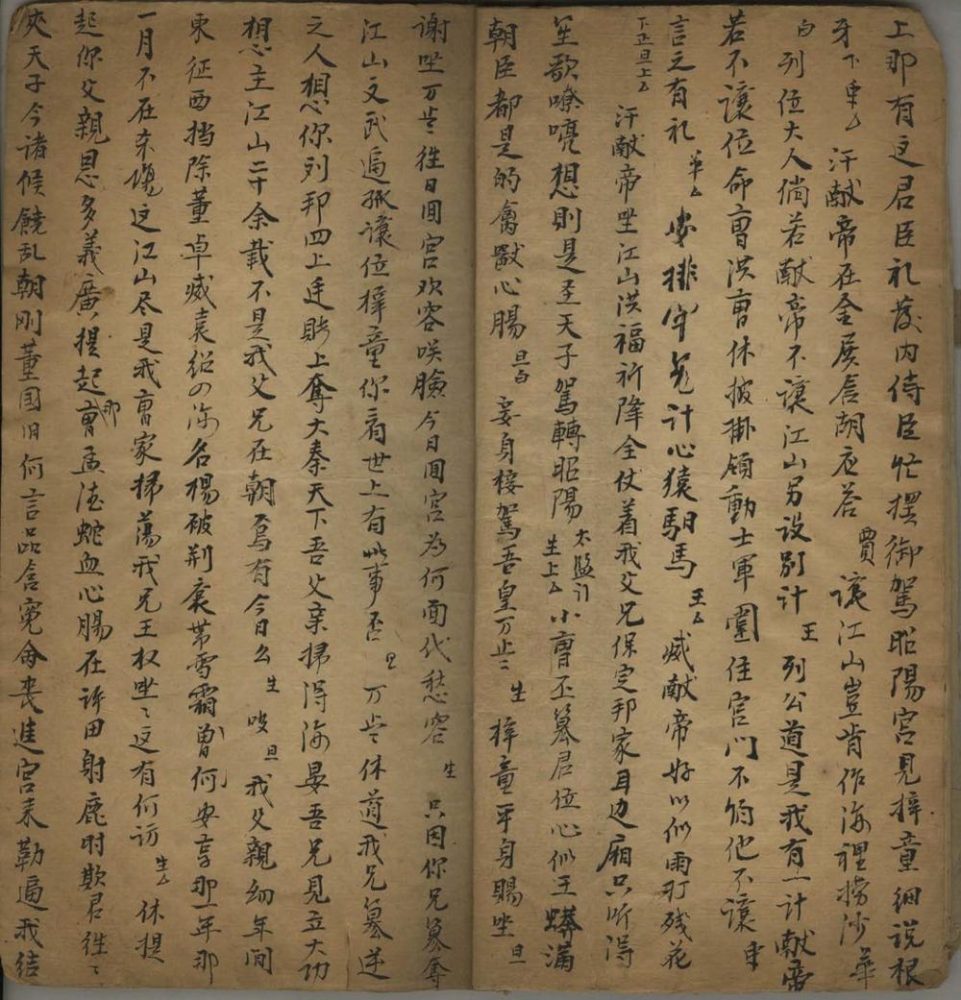 上那有这君臣礼後内侍臣忙摆御駕昭陽宮見梓童細说根
牙 下 車 汗献帝在金展含胡应答 賈 讓江山豈肯作海裡捞沙 華
白 列位大人倘若献帝不讓江山另设别计 王 列公道是我有一计献帝
若不讓位命曹洪曹休披掛領動士軍圍住宮門不怕他不讓
言之有礼 华 安排牢笼计心猿馬 王 献帝好以似雨打残花
下 正旦上 汗献帝坐江山洪福祈降全仗着我父兄保定邦家耳边厢只听得
笙歌嘹喨想則是圣天子駕轉昭陽 太監引 生上 小曹丕篡君位心似王蟒满
朝臣都是的禽獸心腸 旦白 妾身接駕吾皇万岁 生 梓童平身賜坐 旦
谢坐万岁往日回宮欢容咲臉今日回宮为何面代愁容 生 只因你兄篡奪
江山文武逼孤讓位梓童你看世上有此事否 旦 万岁休道我兄篡逆
之人想你列邦四上廷上奪大秦天下吾父亲掃得海晏吾兄見立大功
想主江山二十余載不是我父兄在朝焉有今日么 生 唗 旦 我父親幼年间
東征西挡除董卓滅袁绍四海名揚破荆襄带雪霜曾何安享那一年那
一月不在杀場这江山尽是我曹家掃荡我兄王权坐坐这有何访 生 休提
起你父親恩多義廣提起那曹孟德蛇血心腸在许田射鹿时欺君往往
挾天子令诸候饒乱朝刚董国旧何言品含冤命丧進宮来勒逼我结